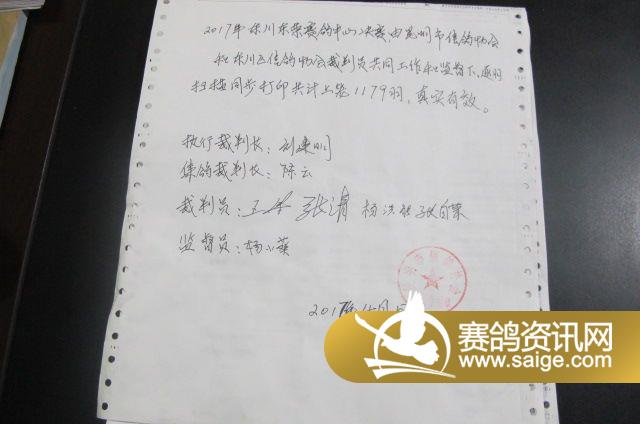 2017年东川东荣赛鸽中心决赛,由昆明市信鸽协会
和东川区信鸽协会裁判员共同工作和监督下,逐羽
扫描同步打印共计上笼1179羽,真实有效。
执行裁判长:
集鸽裁判长:陈云
裁判员: 张清 杨洪
监督员:杨小英
2017年
赛鸽资讯网
www.saige.com